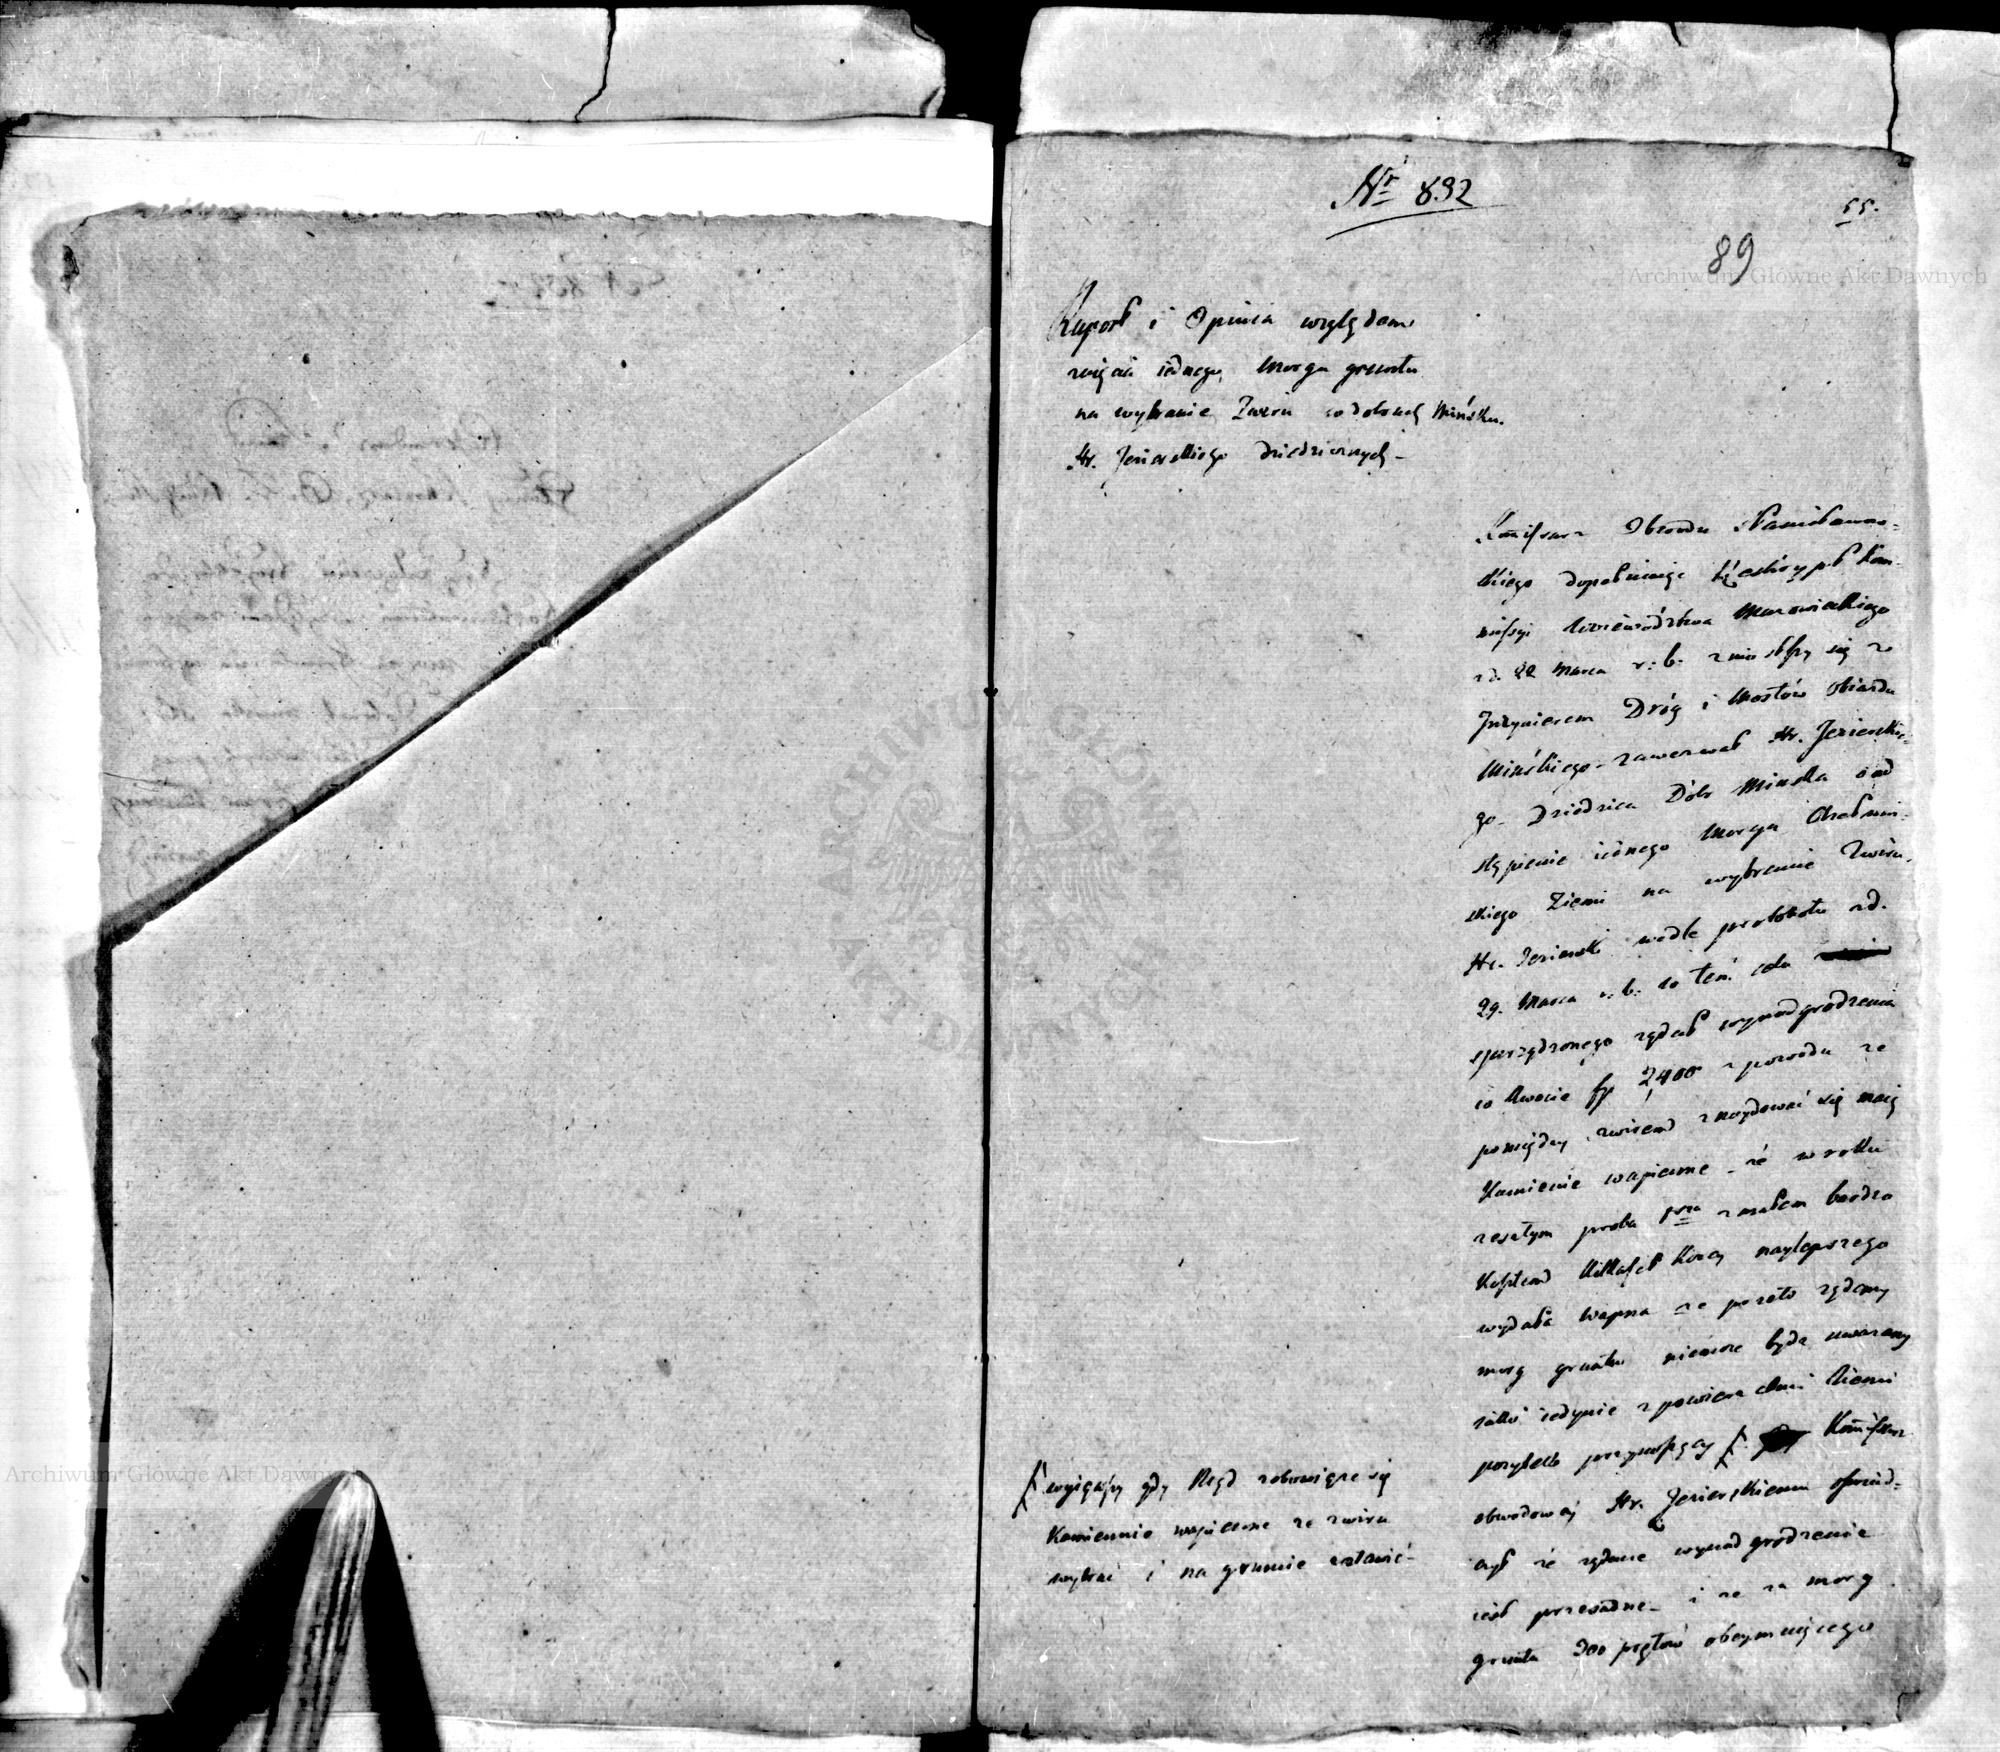 Nr 832
55.
89
Raport i Opinia względem
zajęcia iednego Morga gruntu
na wybranie Zwiru w dobrach Mińsku.
Hr. Jezierskiego dziedzicznych –
Komissarz Obwodu Stanisławow-
skiego dopełniaiąc Kom-
missyi Woiewództwa Mazowieckiego
z d. 22 Marca r: b: zniosłszy się ze
Inżynierem Dróg i Mostów Obwodu
Mińskiego – zawezwał Hr. Jezierskie-
go – Dziedzica Dóbr Minska o od
stąpienie iednego Morga Chełmiń-
skiego Ziemi na wybranie Zwiru.
Hr. Jezierski wedle protokołu z d.
29. Marca r: b: w tem celu
sporządzonego żądał wynadgrodzenia
w kwocie fp 2,400 z powodu że
pomiędzy zwirem znaydować się maią
Kamienie wapienne – że w roku
zeszłym proba z małem bardzo
Kosztem Kilkaset Korcy naylepszego
wydała wapna że przeto żądany
morg gruntu niemoże bydź uważany
iako iedynie z powierzchni Ziemi
pożytek przynoszący Komissarz
obwodowy Hr. Jezierskiemu oświad-
czył że żądane wynadgrodzenie
iest przesadne – i że za morg
gruntu 300 prętów obeymuiącego
wyiąwszy gdy Rząd zobowiąże się
Kamienie wapienne ze zwiru
wybrać i na gruncie zostawić –
Archiwum Główne Akt Dawnych
Archiwum Główne Akt Dawnych
ARCHIWUM GŁÓWNE AKT DAWNYCH